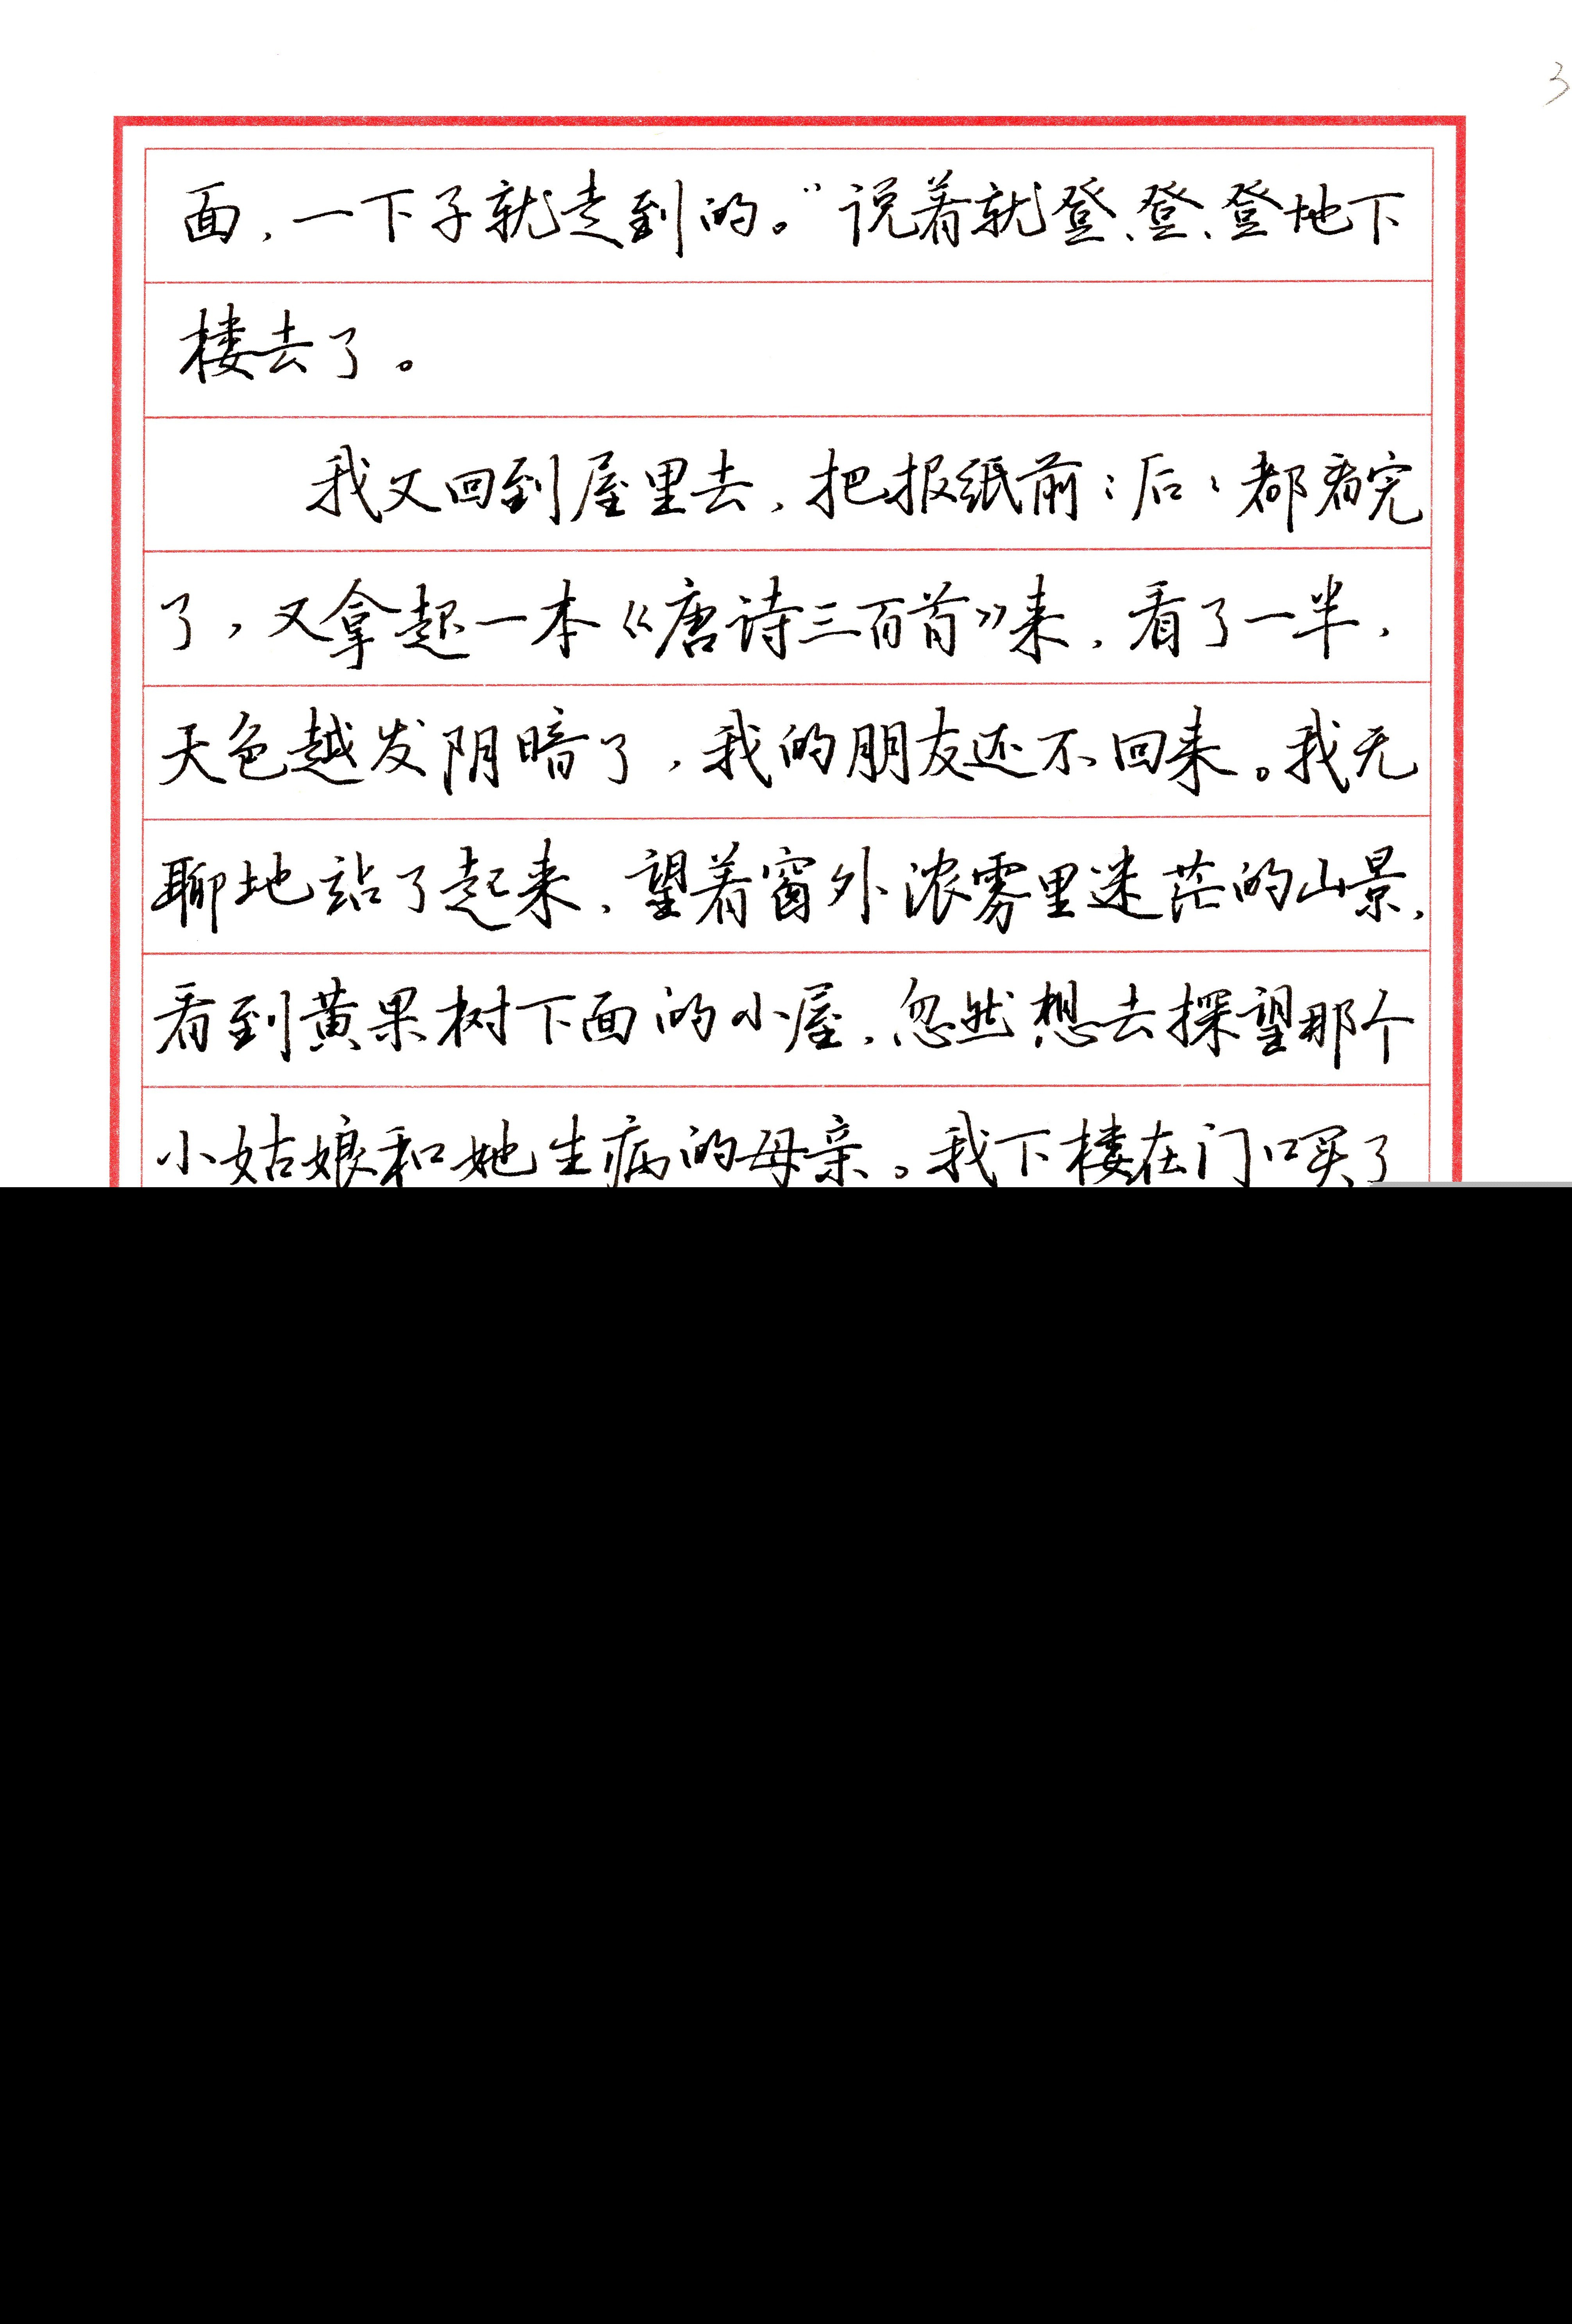 3
面，一下子就走到的。”说着就登、登、登地下
楼去了。
我又回到屋里去，把报纸前：后：都看完
了，又拿起一本《唐诗三百首》来，看了一半，
天色越发阴暗了，我的朋友还不回来。我无
聊地站了起来，望着窗外浓雾里迷茫的山景，
看到黄果树下面的小屋，忽然想去探望那个
小姑娘和她生病的母亲。我下楼在门口买了